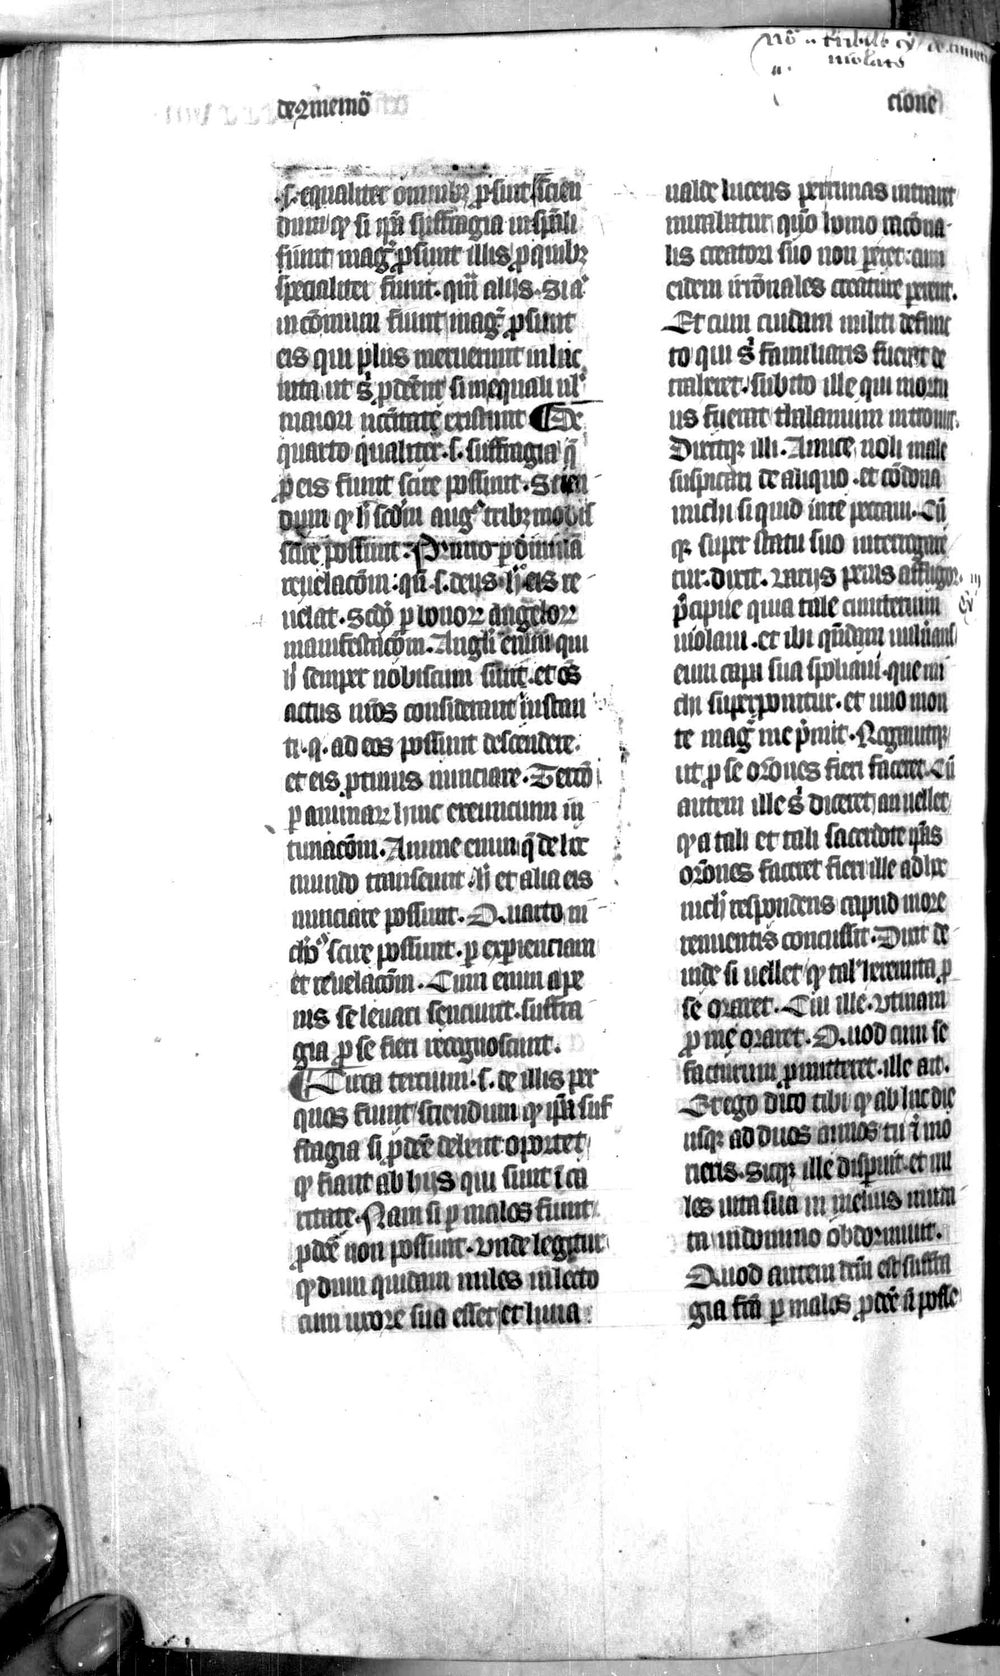 de 2memo᷒
cione
.s. equaliter omnibꝫ ꝓsint scien
dum ꝙ si ip̄a suffragia in sp̄ali
fiunt mag᷒ ꝓsunt illis ꝓ quibꝫ
specialiter fiunt. qm̄ aliis. Si a᷒
in cōmuni fiunt mag᷒ ꝓsunt
eis qui plus meruerunt in hac
uita ut s᷒ ꝓdēnt si in equali ul᷒
maiori nc̄itate existunt ¶ De
quarto qualiter .s. suffragia q̄
ꝓ eis fiunt scire possunt. Scien
dum ꝙ h᷒ scd̄m aug᷒ tribꝫ modis
scire possunt. Primo ꝑ diuinā
reuelacōm: qn̄ .s. deus h᷒ eis re
uelat. Scd̄o ꝑ bonoꝝ angeloꝝ
manifestacōm. Angli enim qui
h᷒ semper nobiscum sunt. et oēs
actus nr̄os considerant instan
ti .q. ad eos possunt descendere.
et eis ꝓtinus nunciare. Tercio
ꝑ animaꝝ hinc exeuncium in
timacōm. Anime enim q̄ de hoc
mundo transeunt. h᷒ et alia eis
nunciare possunt. Quarto ni
chō᷒ scire possunt. ꝑ experienciam
et reuelacōm. Cum enim a pe
nis se leuari senciunt. suffra
gia ꝓ se fieri recognoscunt.
¶ Circa tercium .s. de illis per
quos fiunt sciendum ꝙ ip̄a suf
fragia si ꝓdēe debent oportet
ꝙ fiant ab hijs qui sunt ī ca
ritate. Nam si ꝑ malos fiunt
ꝓdēe non possunt. Unde legitur
ꝙ dum quidam miles in lecto
cum uxore sua esset et luna
ualde lucens per rimas intraret
mirabatur quō homo racōna-
lis creatori suo non paret: cum
eidem irrōnales creature parent.
Et cum cuidam militi defunc
to qui s᷒ familiaris fuerat de
traheret. subito ille qui mortu
us fuerat thalamum introiuit.
Dixitqꝫ illi. Amice noli male
suspicari de aliquo. et cōdona
michi si quid in te peccaui. Cū
qꝫ super statu suo interrogare
tur. dixit. Varijs penis affligor.
p̄cipue quia tale cimiterium
uiolaui. et ibi quēdam uulnerans
eum capa sua spoliaui. que mi
chi superponitur. et uno mon
te mag᷒ me p̄mit. Rogauitqꝫ
ut ꝓ se orōnes fieri faceret. Cū
autem ille s᷒ diceret an uellet
ꝙ a tali et tali sacerdote p̄ns
orōnes faceret fieri ille ad hec
nich᷒ respondens capud more
renuentis concussit. Dixit de
inde si uellet ꝙ tal᷒ heremita ꝓ
se oraret. Cui ille. Utinam
ꝓ me oraret. Quod cum se
facturum ꝓmitteret. ille ait.
Et ego dico tibi ꝙ ab hac die
usqꝫ ad duos annos tu ī mo
rieris. Sicqꝫ ille disparuit. et mi
les uita sua in melius muta
ta in domino obdormiuit.
Quod autem dc̄m est suffra
gia fc̄a ꝑ malos ꝓdēe n̄ posse